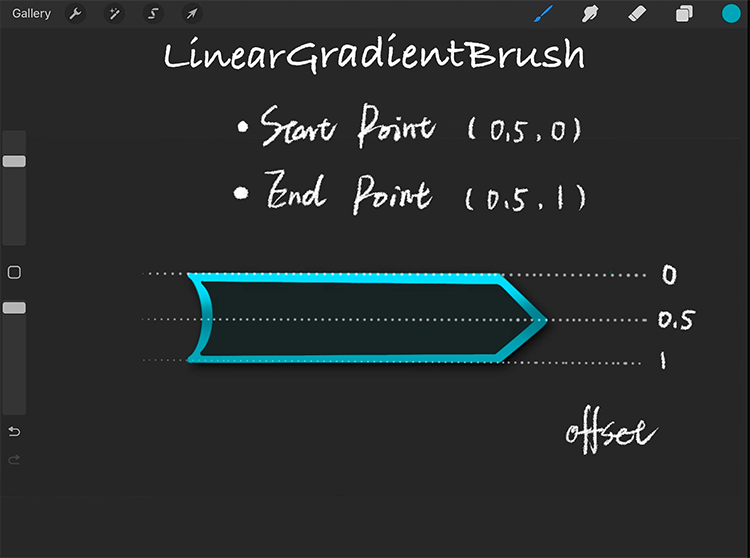 Gallery
LinearGradientBrush
• Start Point (0.5, 0)
• End Point (0.5, 1)
0
0.5
1
offset